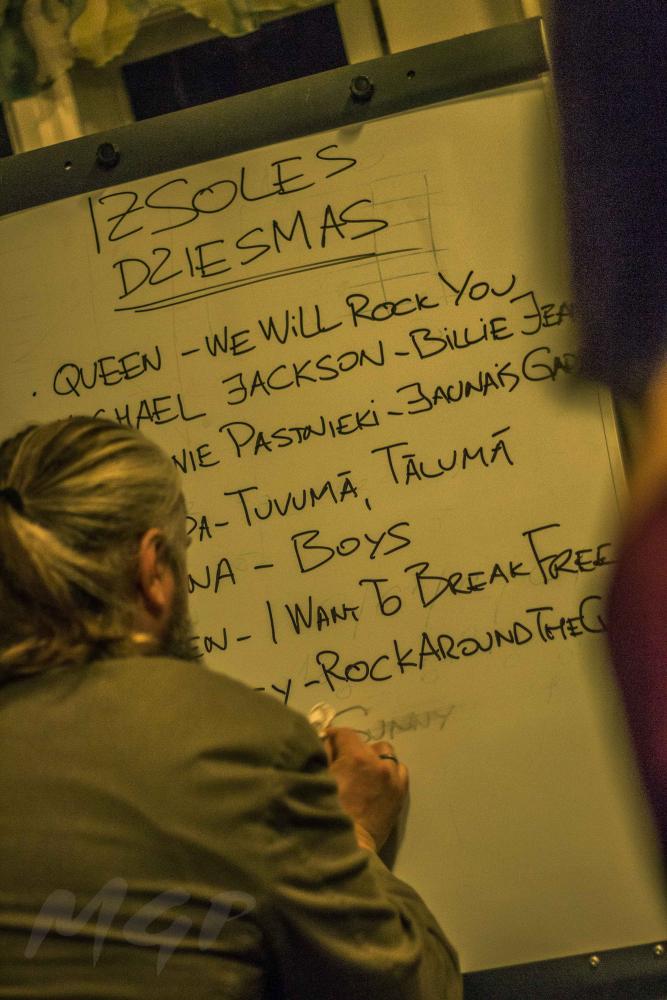 IZSOLES
DZIESMAS
· QUEEN - WE WILL ROCK YOU
CHAEL JACKSON - BILLIE JEA
NIE PASTNIEKI - JAUNAIS GAD
PA - TUVUMĀ, TĀLUMĀ
NA - BOYS
EN - I WANT TO BREAK FREE
EY - ROCK AROUND THE C
SUNNY
MGP